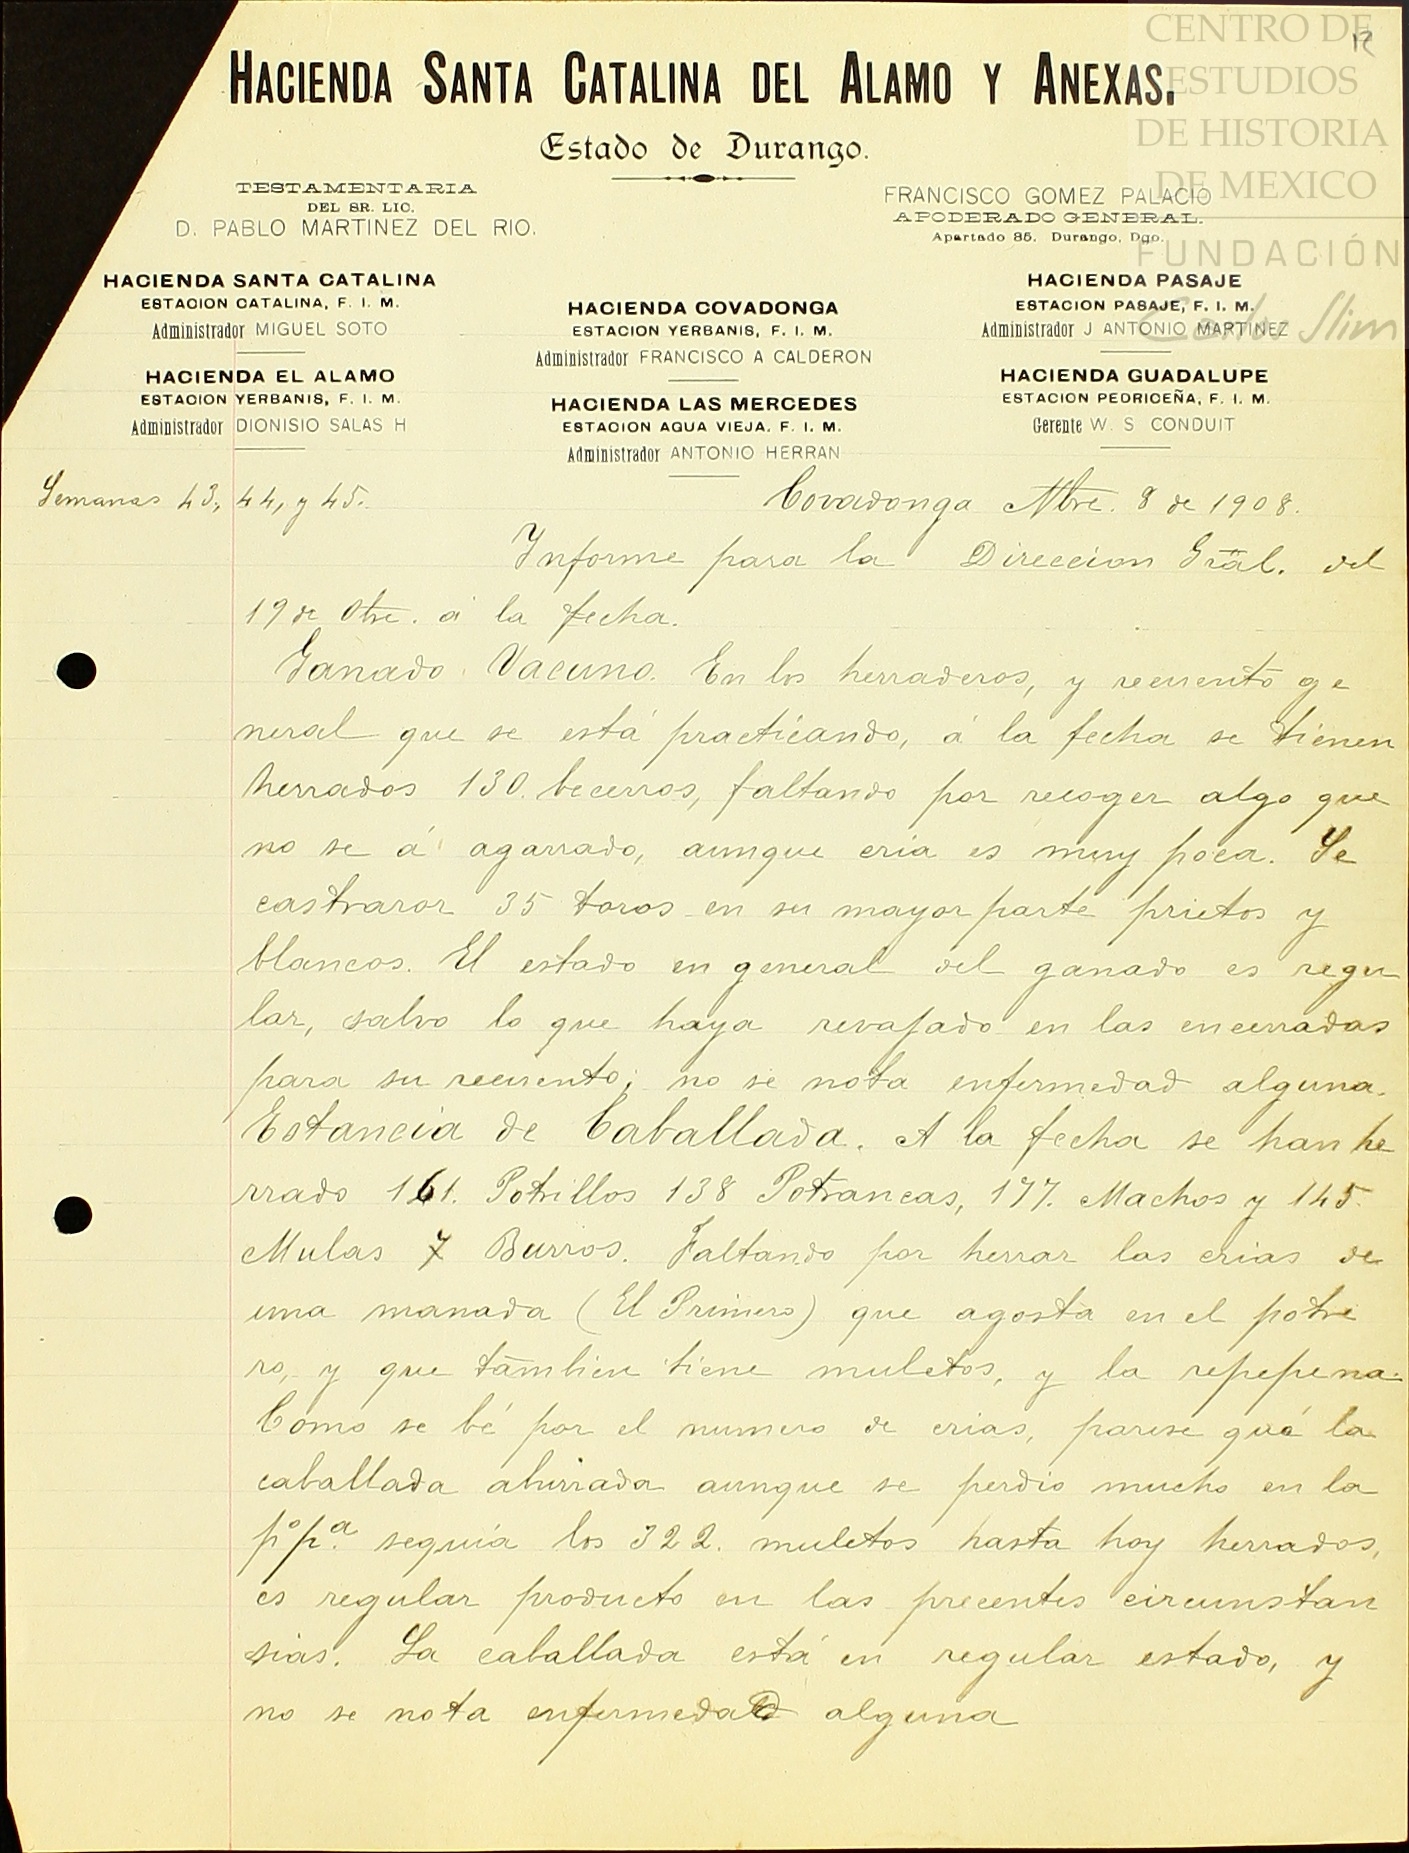 CENTRO DE
ESTUDIOS
DE HISTORIA
DE MEXICO
FUNDACIÓN
Carlos Slim
12
HACIENDA SANTA CATALINA DEL ALAMO Y ANEXAS.
Estado de Durango.
TESTAMENTARIA
DEL SR. LIC.
D. PABLO MARTINEZ DEL RIO.
FRANCISCO GOMEZ PALACIO
APODERADO GENERAL.
Apartado 35. Durango, Dgo.
HACIENDA SANTA CATALINA
ESTACION CATALINA, F. I. M.
Administrador MIGUEL SOTO
HACIENDA EL ALAMO
ESTACION YERBANIS, F. I. M.
Administrador DIONISIO SALAS H
HACIENDA COVADONGA
ESTACION YERBANIS, F. I. M.
Administrador FRANCISCO A CALDERON
HACIENDA LAS MERCEDES
ESTACION AGUA VIEJA. F. I. M.
Administrador ANTONIO HERRAN
HACIENDA PASAJE
ESTACION PASAJE, F. I. M.
Administrador J ANTONIO MARTINEZ
HACIENDA GUADALUPE
ESTACION PEDRICEÑA, F. I. M.
Gerente W. S CONDUIT
Semanas 43, 44, y 45.
Covadonga Nbre. 8 de 1908.
Informe para la Direccion Gral. del
19 de Otre. á la fecha.
Ganado Vacuno. En los herraderos, y recuento ge
neral que se está practicando, á la fecha se tienen
herrados 130. becerros, faltando por recoger algo que
no se á agarrado, aunque cria es muy poca. Se
castraror 35 toros en su mayor parte prietos y
blancos. El estado en general del ganado es regu
lar, salvo lo que haya revajado en las encerradas
para su recuento; no se nota enfermedad alguna.
Estancia de Caballada. A la fecha se han he
rrado 161. Potrillos 138 Potrancas, 177. Machos y 145
Mulas 7 Burros. Faltando por herrar las crias de
una manada (El Primero) que agosta en el potre
ro, y que tambien tiene muletos, y la repepena.
Como se bé por el numero de crias, parese qué la
caballada ahirrada aunque se perdio mucho en la
pºpª. seguia los 322. muletos hasta hoy herrados,
es regular producto en las precentes circunstan
sias. La caballada está en regular estado, y
no se nota enfermedad alguna